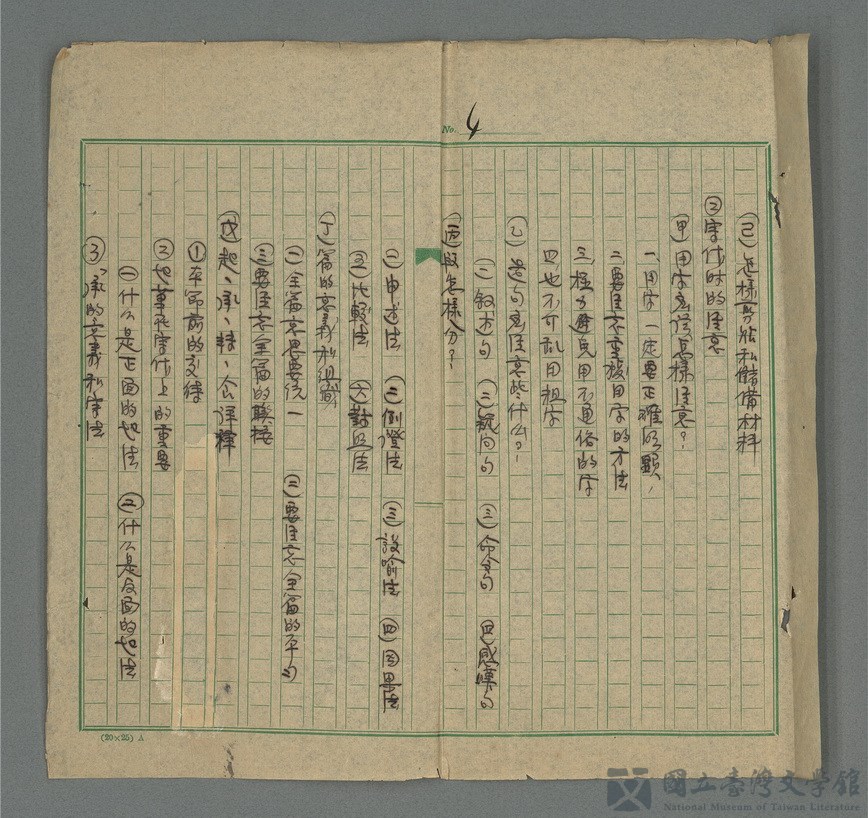 No. 4
㊁怎樣尋找和儲備材料
②寫作時的注意
㊙用字應該怎樣注意？
一、用字一定要正確明顯，
二、要注意重複用字的方法
三、極力避免用不通俗的字
四也不可乱用粗字
㊁造句應注意些什么？
㈠敘述句 ㈡疑问句 ㈢命令句 ㈣感嘆句
㈠丙段怎樣分？
㈠申述法 ㈡倒證法 ㈢設喻法 ㈣因果法
㈤比較法 ㈥對照法
㈠丁篇的意義和組織
㈠全篇意思要統一 ㈡要注意全篇的平勻
㈢要注意全篇的聯接
戊起、承、轉、合詳釋
①本節前的交待
②起筆在寫作上的重要
㈠什么是正面的起法 ㈡什么是反面的起法
③「承」的意義和寫法
(20×25) A
國立臺灣文學館
National Museum of Taiwan Literature